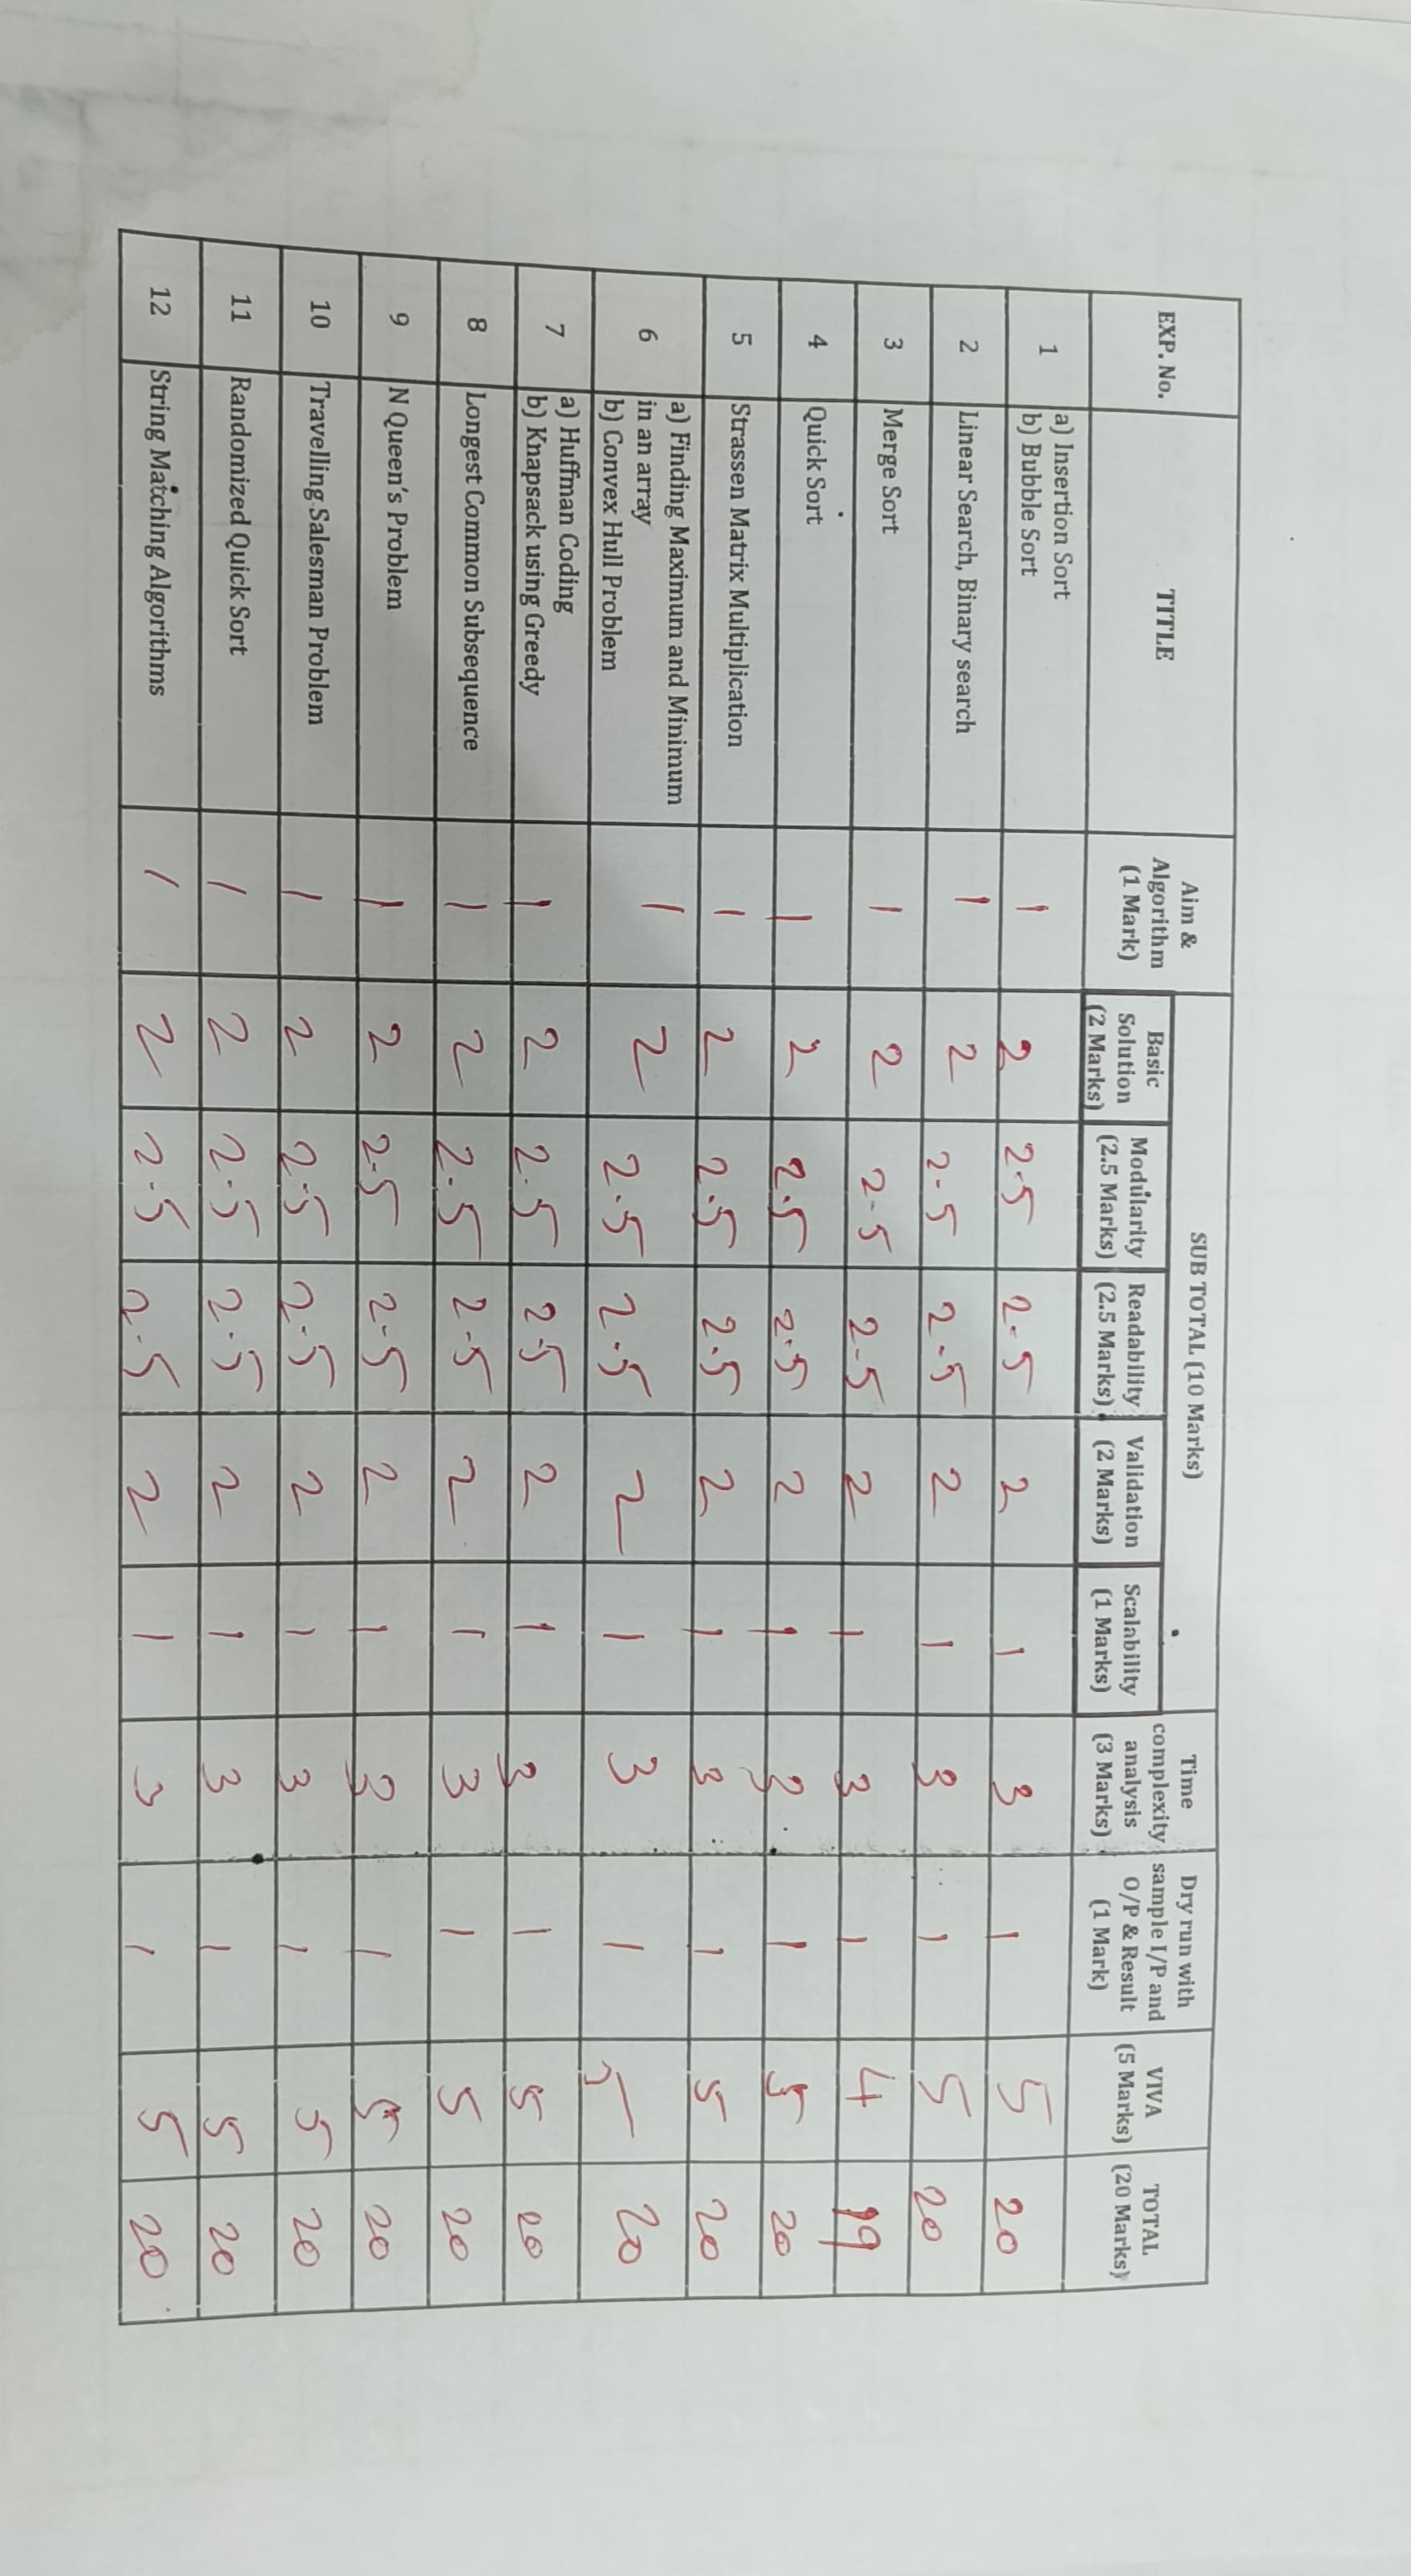 EXP. No. TITLE Aim & Algorithm (1 Mark) SUB TOTAL (10 Marks) Time complexity analysis (3 Marks) Dry run with sample I/P and O/P & Result (1 Mark) VIVA (5 Marks) TOTAL (20 Marks)
Basic Solution (2 Marks) Modularity (2.5 Marks) Readability (2.5 Marks) Validation (2 Marks) Scalability (1 Marks)
1 a) Insertion Sort
b) Bubble Sort 1 2 2.5 2.5 2 1 3 1 5 20
2 Linear Search, Binary search 1 2 2.5 2.5 2 1 3 1 5 20
3 Merge Sort 1 2 2.5 2.5 2 1 3 1 4 19
4 Quick Sort 1 2 2.5 2.5 2 1 3 1 5 20
5 Strassen Matrix Multiplication 1 2 2.5 2.5 2 1 3 1 5 20
6 a) Finding Maximum and Minimum
in an array
b) Convex Hull Problem 1 2 2.5 2.5 2 1 3 1 5 20
7 a) Huffman Coding
b) Knapsack using Greedy 1 2 2.5 2.5 2 1 3 1 5 20
8 Longest Common Subsequence 1 2 2.5 2.5 2 1 3 1 5 20
9 N Queen's Problem 1 2 2.5 2.5 2 1 3 1 5 20
10 Travelling Salesman Problem 1 2 2.5 2.5 2 1 3 1 5 20
11 Randomized Quick Sort 1 2 2.5 2.5 2 1 3 1 5 20
12 String Matching Algorithms 1 2 2.5 2.5 2 1 3 1 5 20